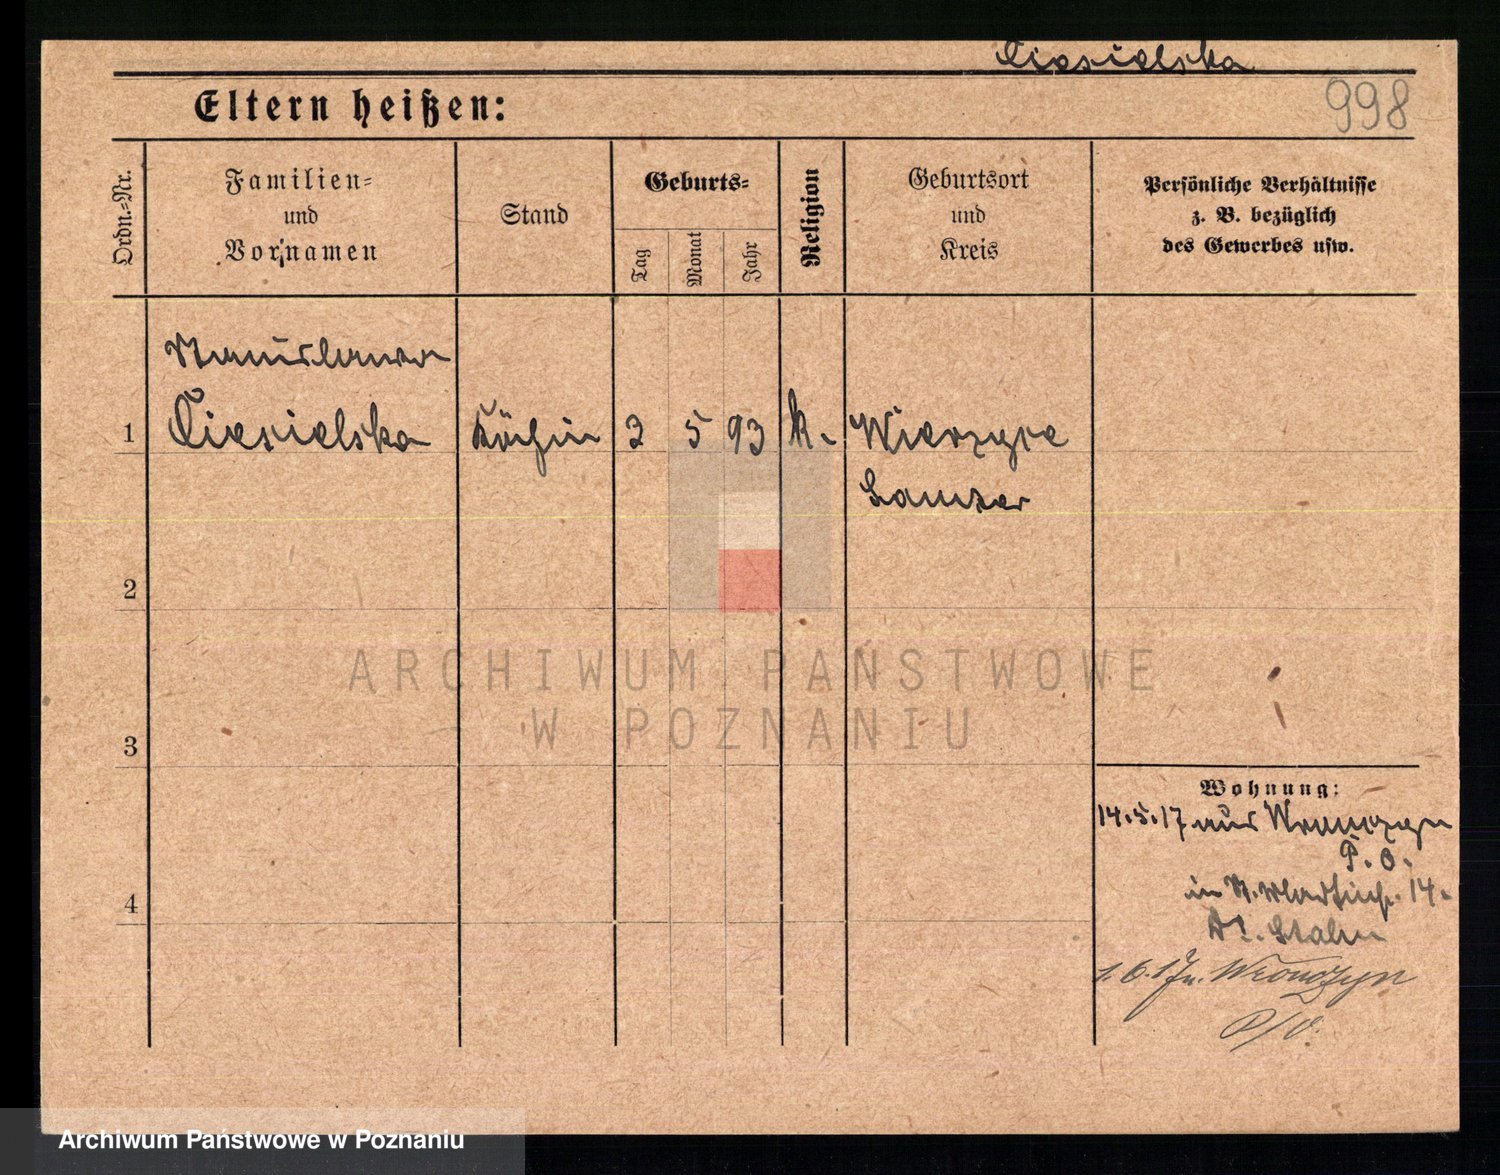 Ciesielska
998
Eltern heißen:
Ordn.-Nr.
Familien-
und
Vornamen
Stand
Geburts-
Tag
Monat
Jahr
Religion
Geburtsort
und
Kreis
Persönliche Verhältnisse
z. B. bezüglich
des Gewerbes usw.
Stanislawa
1 Ciesielska Köchin 3 5 93 k. Wierzyce
2
3
4
Wohnung:
14.5.17 aus Wronczyn
P. O.
in 14.
Dr. Stalm
1.6.17 n. Wronczyn
P/O.
ARCHIWUM PAŃSTWOWE
W POZNANIU
Archiwum Państwowe w Poznaniu